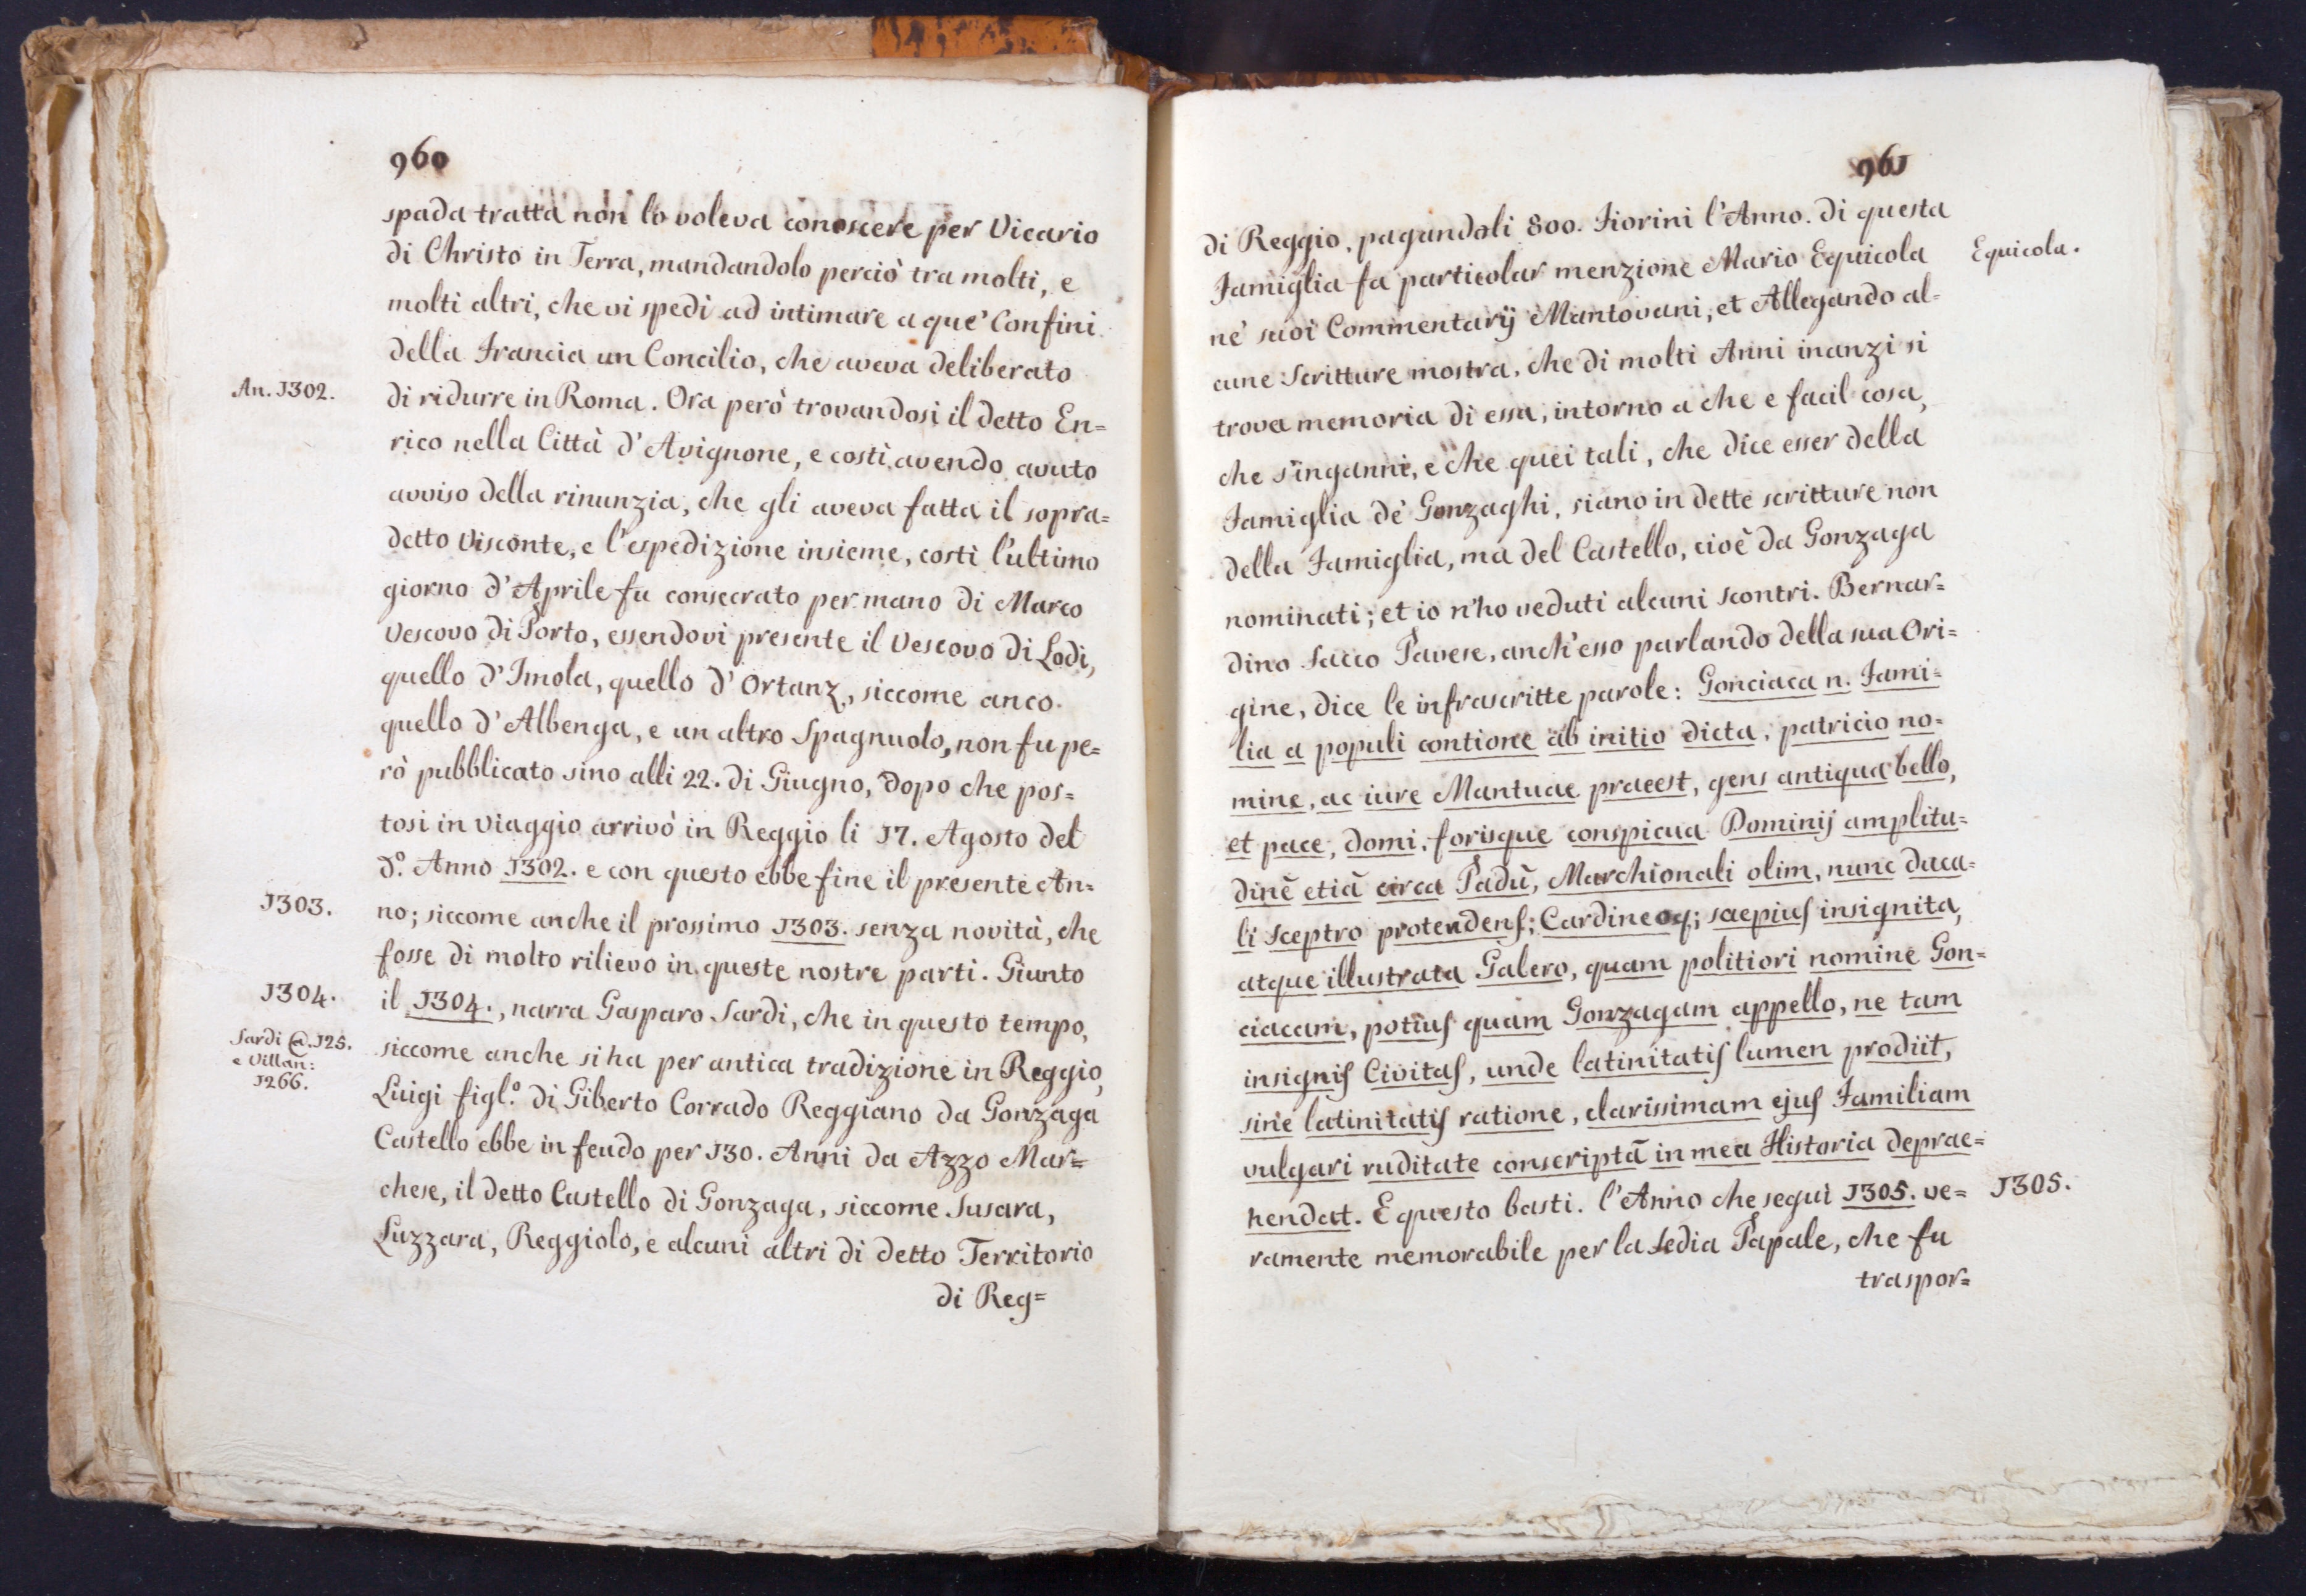 960
spada tratta non lo voleva conoscere per Vicario
di Christo in Terra, mandandolo perciò tra molti, e
molti altri, che vi spedì ad intimare a que' Confini
della Francia un Concilio, che aveva deliberato
An. 1302.
di ridurre in Roma. Ora però trovandosi il detto En=
rico nella Città d'Avignone, e costì avendo avuto
avviso della rinunzia, che gli aveva fatta il sopra=
detto Visconte, e l'espedizione insieme, costì l'ultimo
giorno d'Aprile fu consecrato per mano di Marco
Vescovo di Porto, essendovi presente il Vescovo di Lodi,
quello d'Imola, quello d'Ortanz, siccome anco
quello d'Albenga, e un altro Spagnuolo, non fu pe=
rò pubblicato sino alli 22. di Giugno, dopo che pos=
tosi in viaggio arrivò in Reggio li 17. Agosto del
d.º Anno 1302. e con questo ebbe fine il presente An=
1303.
no; siccome anche il prossimo 1303. senza novità, che
fosse di molto rilievo in queste nostre parti. Giunto
1304.
il 1304., narra Gasparo Sardi, che in questo tempo,
Sardi @. 125.
e Villan:
1266.
siccome anche si ha per antica tradizione in Reggio,
Luigi figl.º di Giberto Corrado Reggiano da Gonzaga
Castello ebbe in feudo per 130. Anni da Azzo Mar=
chese, il detto Castello di Gonzaga, siccome Susara,
Luzzara, Reggiolo, e alcuni altri di detto Territorio
di Reg=
961
di Reggio, pagandoli 800. Fiorini l'Anno. Di questa
Equicola.
Famiglia fa particolar menzione Mario Equicola
ne' suoi Commentarij Mantovani; et Allegando al=
cune Scritture mostra, che di molti Anni inanzi si
trova memoria di essa, intorno a che e facil cosa,
che s'inganni, e che quei tali, che dice esser della
Famiglia de' Gonzaghi, siano in dette scritture non
della Famiglia, ma del Castello, cioè da Gonzaga
nominati; et io n'ho veduti alcuni scontri. Bernar=
dino Sacco Pavese, anch'esso parlando della sua Ori=
gine, dice le infrascritte parole: Gonciaca n. Fami=
lia a populi contione ab initio dicta, patricio no=
mine, ac iure Mantuae praeest, gens antiqua bello,
et pace, domi, forisque conspicua Dominij amplitu=
dinē etiā circa Padū, Marchionali olim, nunc duca=
li Sceptro protendens; Cardineoq; saepius insignita,
atque illustrata Galero, quam politiori nomine Gon=
ciacam, potius quam Gonzagam appello, ne tam
insignis Civitas, unde latinitatis lumen prodiit,
sine latinitatis ratione, clarissimam ejus Familiam
vulgari ruditate conscriptā in mea Historia deprae=
1305.
hendat. E questo basti. l'Anno che seguì 1305. ve=
ramente memorabile per la Sedia Papale, che fu
traspor=